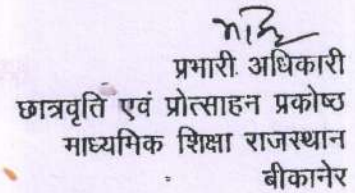 प्रभारी अधिकारी
छात्रवृति एवं प्रोत्साहन प्रकोष्ठ
माध्यमिक शिक्षा राजस्थान
बीकानेर